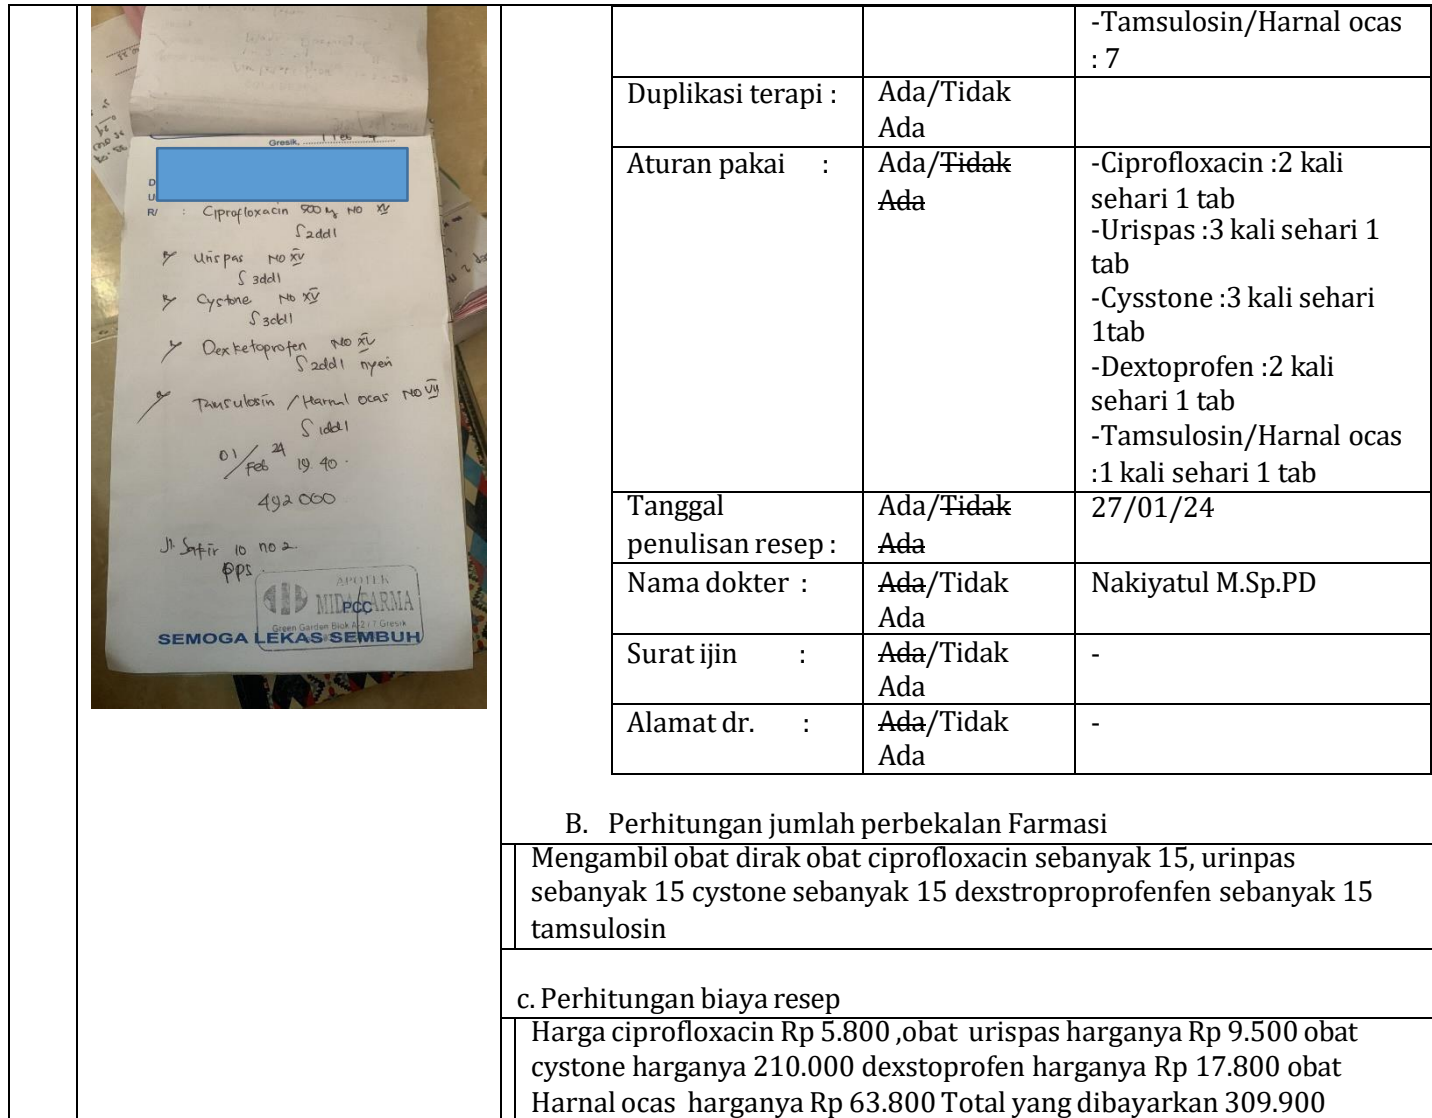 Gresik, 1 Feb
R/ : Ciprofloxacin 500 mg NO XV
S2dd1
Urispas NO XV
S 3dd1
Cystone NO XV
S3dd1
Dexketoprofen NO XV
S2dd1 nyeri
Tamsulosin / Harnal ocas NO VII
S 1dd1
01/Feb 24 19.40.
492 000
Jl. Safir 10 no 2.
PPS
APOTEK
MIDAFARMA
PCC
Green Garden Blok A-2 / 7 Gresik
SEMOGA LEKAS SEMBUH
-Tamsulosin/Harnal ocas
: 7
Duplikasi terapi :
Ada/Tidak
Ada
Aturan pakai :
Ada/Tidak
Ada
-Ciprofloxacin :2 kali
sehari 1 tab
-Urispas :3 kali sehari 1
tab
-Cysstone :3 kali sehari
1tab
-Dextoprofen :2 kali
sehari 1 tab
-Tamsulosin/Harnal ocas
:1 kali sehari 1 tab
Tanggal
penulisan resep :
Ada/Tidak
Ada
27/01/24
Nama dokter :
Ada/Tidak
Ada
Nakiyatul M.Sp.PD
Surat ijin :
Ada/Tidak
Ada
-
Alamat dr. :
Ada/Tidak
Ada
-
B. Perhitungan jumlah perbekalan Farmasi
Mengambil obat dirak obat ciprofloxacin sebanyak 15, urinpas
sebanyak 15 cystone sebanyak 15 dexstroproprofenfen sebanyak 15
tamsulosin
c. Perhitungan biaya resep
Harga ciprofloxacin Rp 5.800 ,obat urispas harganya Rp 9.500 obat
cystone harganya 210.000 dexstoprofen harganya Rp 17.800 obat
Harnal ocas harganya Rp 63.800 Total yang dibayarkan 309.900